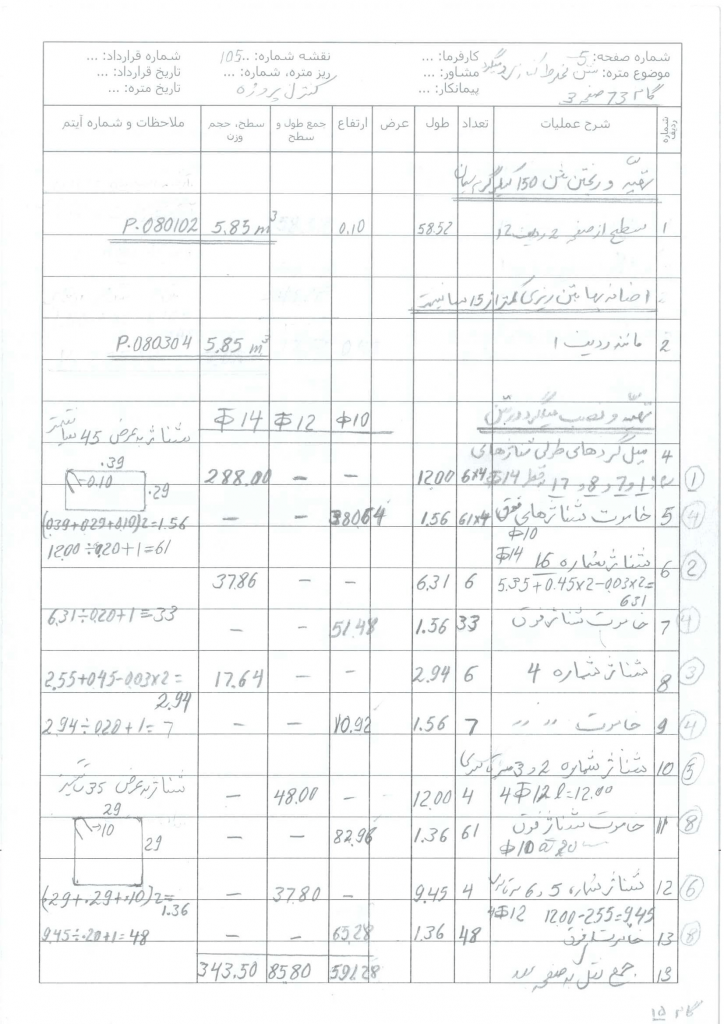 شماره صفحه: 5 کارفرما: ... نقشه شماره: ..105 شماره قرارداد: ...
موضوع متره: مشاور: ... ریز متره، شماره: ... تاریخ قرارداد: ...
گام 73 صفحه 3 پیمانکار: ... کنترل پروژه تاریخ متره: ...
شماره ردیف شرح عملیات تعداد طول عرض ارتفاع جمع طول و سطح سطح، حجم وزن ملاحظات و شماره آیتم
تهیه و ریختن بتن 150 کیلوگرم سیمان
1 سطح از صفحه 2 ردیف 12 58.52 0.10 5.85 m³ P.080102
اضافه بها بتن ریزی کمتر از 15 سانتیمتر
2 مانند ردیف 1 5.85 m³ P.080304
تهیه و نصب میلگرد در بتن Φ10 Φ12 Φ14
شناژ به عرض 45 سانتیمتر
4 میل گردهای طولی شناژهای
1 و 7 و 8 و 17 Φ14 6x4 12.00 – – 288.00 ①
.39 0.10 .29
5 خاموت شناژهای فوق Φ10 61x4 1.56 380.64 – – (0.39+0.29+0.10)2=1.56 ④
12.00÷0.20+1=61
6 شناژ شماره 16 Φ14 ②
5.35+0.45x2-0.03x2= 6.31 6 6.31 – – 37.86
7 خاموت شناژ فوق 33 1.56 51.48 – – 6.31÷0.20+1=33 ④
8 شناژ شماره 4 6 2.94 – – 17.64 2.55+0.45-0.03x2= 2.94 ③
9 خاموت 〃 〃 7 1.56 10.92 – – 2.94÷0.20+1=7 ④
10 شناژ شماره 2 و 3 ⑤
4Φ12 l=12.00 4 12.00 – 48.00 – شناژ به عرض 35 سانتیمتر
29 10 29
11 خاموت شناژ فوق 61 1.36 82.96 – – ⑧
Φ10 @ 20
12 شناژ شماره 5 و 6 4 9.45 – 37.80 – (.29+.29+.10)2= 1.36 ⑥
4Φ12 1200-255=9.45
13 خاموت فوق 48 1.36 65.28 – – 9.45÷.20+1=48 ⑧
13 جمع نقل به صفحه بعد 591.28 85.80 343.50
گام 15